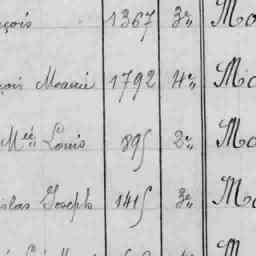 çois 1367 3e Mo
çois Maurice 1792 4e Mo
Mce Louis 895 2e Mo
islas Joseph 1415 3e Mo